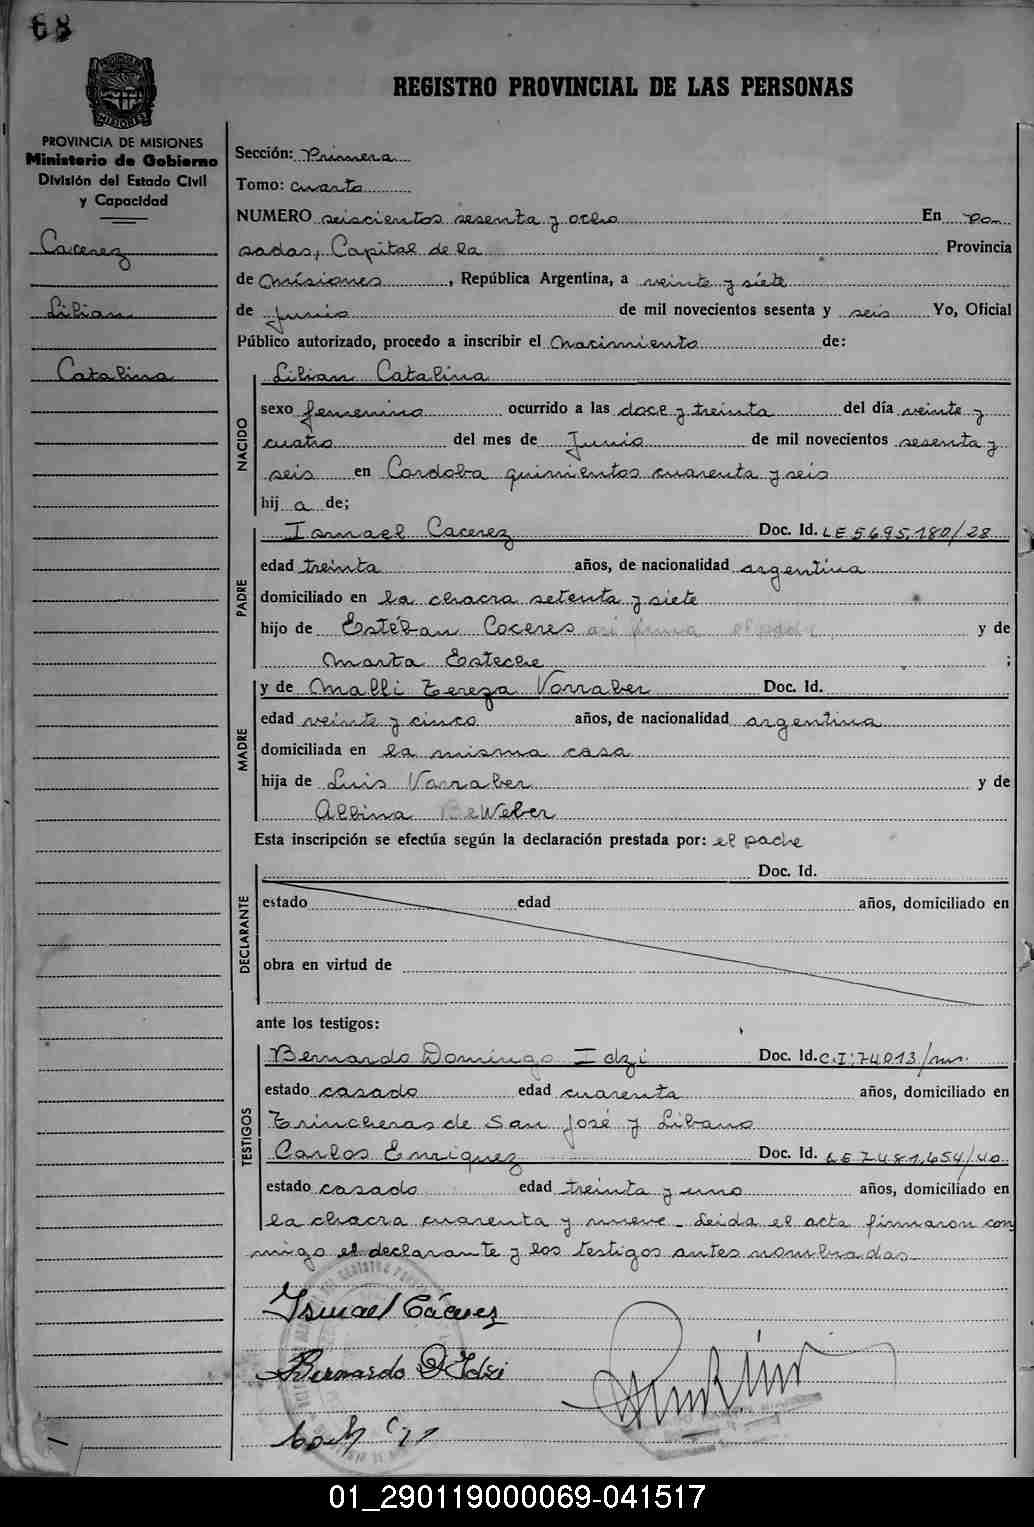 68
REGISTRO PROVINCIAL DE LAS PERSONAS
PROVINCIA DE MISIONES
Ministerio de Gobierno
División del Estado Civil
y Capacidad
Cacerez
Lilian
Catalina
Sección: Primera
Tomo: cuarto
NUMERO seiscientos sesenta y ocho En Po-
sadas, Capital de la Provincia
de Misiones, República Argentina, a veinte y siete
de Junio de mil novecientos sesenta y seis Yo, Oficial
Público autorizado, procedo a inscribir el Nacimiento de:
NACIDO
Lilian Catalina
sexo femenino ocurrido a las doce y treinta del día veinte y
cuatro del mes de Junio de mil novecientos sesenta y
seis en Cordoba quinientos cuarenta y seis
hij a de;
PADRE
Ismael Cacerez Doc. Id. LE 5.695.180/28
edad treinta años, de nacionalidad argentina
domiciliado en la chacra setenta y siete
hijo de Estéban Coceres así firma el padre y de
Marta Esteche ;
MADRE
y de Malli Tereza Vorraber Doc. Id.
edad veinte y cinco años, de nacionalidad argentina
domiciliada en la misma casa
hija de Luis Vorraber y de
Albina Weber
Esta inscripción se efectúa según la declaración prestada por: el padre
DECLARANTE
Doc. Id.
estado edad años, domiciliado en
obra en virtud de
ante los testigos:
TESTIGOS
Bernardo Domingo Idzi Doc. Id. C.I: 74013/mr.
estado casado edad cuarenta años, domiciliado en
Trincheras de San José y Libano
Carlos Enriquez Doc. Id. LE 7.481.654/40
estado casado edad treinta y uno años, domiciliado en
la chacra cuarenta y nueve - Leida el acta firmaron con
migo el declarante y los testigos antes nombrados
Ismael Cácerez
Bernardo D Idzi
01_290119000069-041517